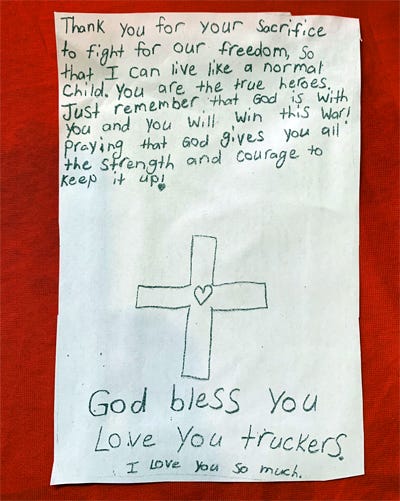 Thank you for your sacrifice
to fight for our freedom, so
that I can live like a normal
child. You are the true heroes.
Just remember that God is with
you and you will win this war!
praying that God gives you all
the strength and courage to
keep it up!
God bless you
Love you truckers.
I love you so much.